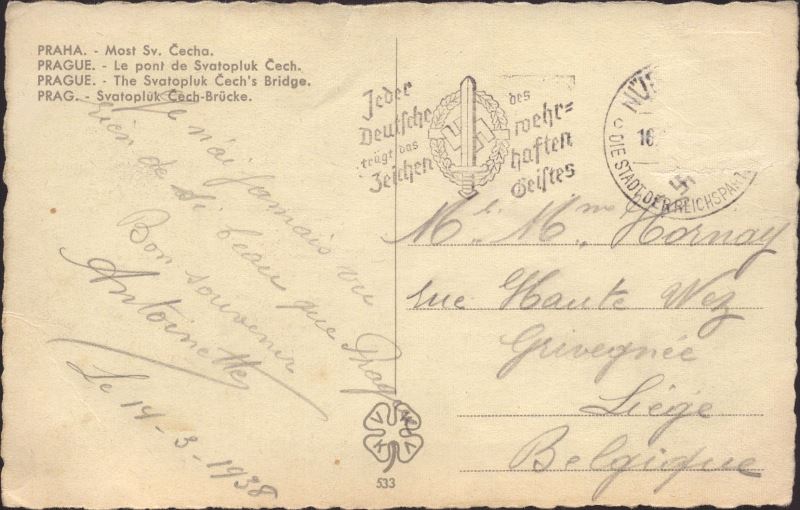 PRAHA. - Most Sv. Čecha.
PRAGUE. - Le pont de Svatopluk Čech.
PRAGUE. - The Svatopluk Čech's Bridge.
PRAG. - Svatopluk Čech-Brücke.
Je n'ai jamais vu
rien de si beau que Prague
Bon souvenir
Antoinette
Le 14-3-1938
Jeder
Deutsche
trägt das
Zeichen
des
wehr=
haften
Geistes
NÜ
16.
DIE STADT DER REICHSPART
Mr. Mme Hornay
rue Haute Wez
Grivegnée
Liége
Belgique
V K V
533